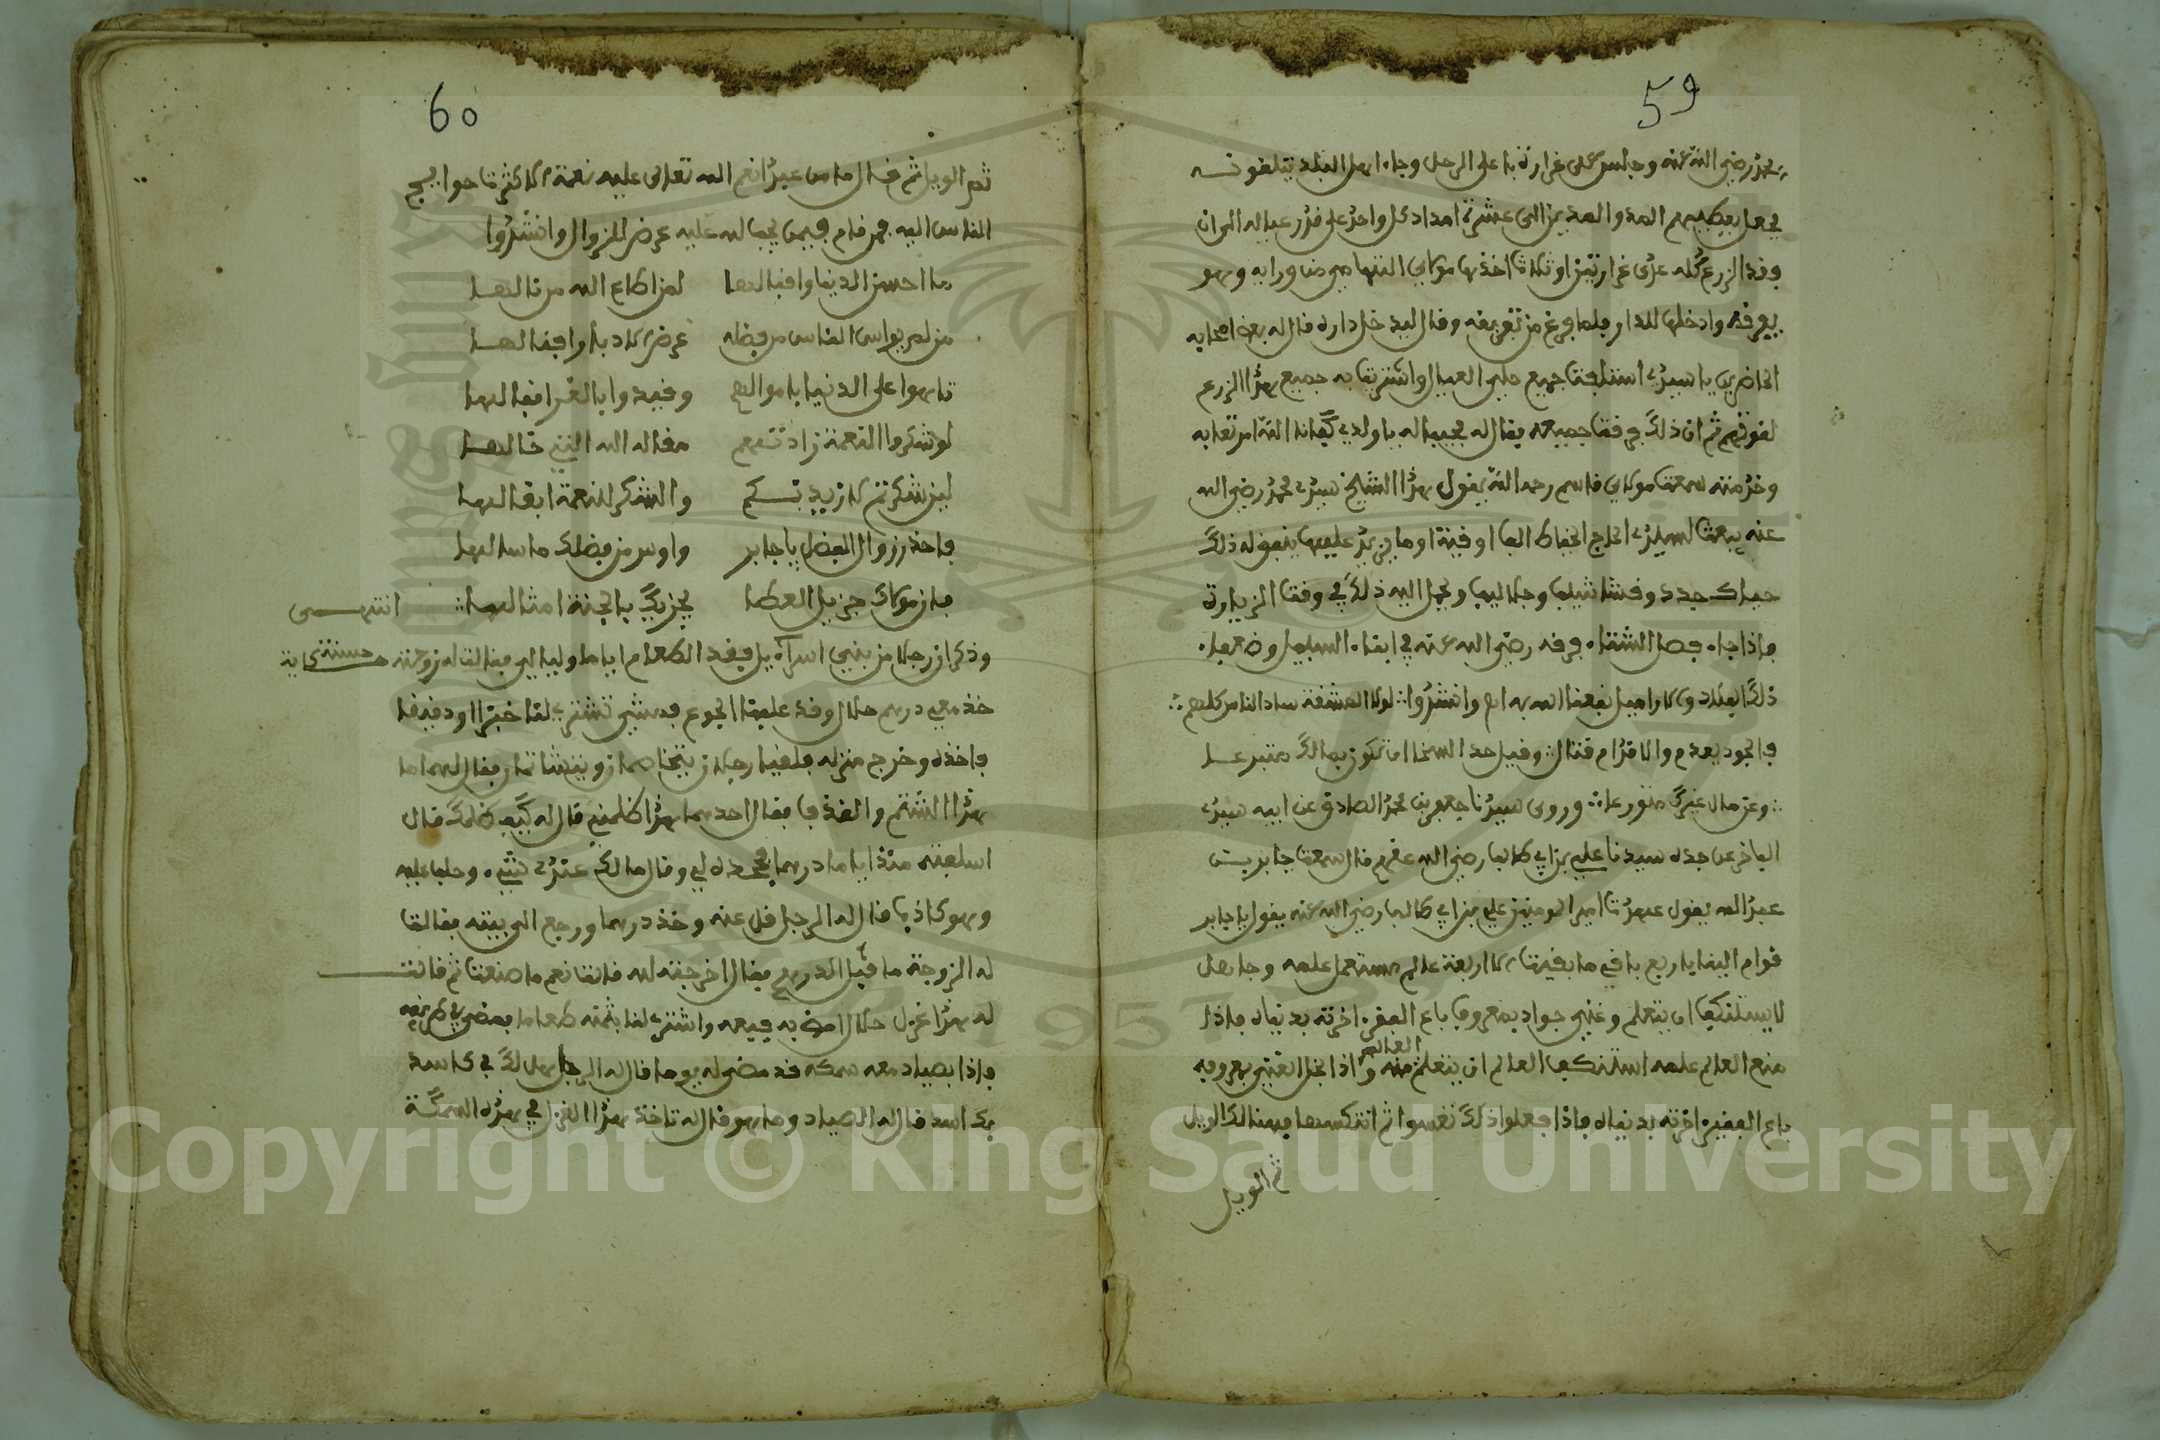 59
محمد رضي الله عنه وجلس على غرارة باعلى الرحل وجاء اهل البلد يتلقونه
فجعل يعطيهم المد والمدين الى عشرة امداد كل واحد على قدر عياله الى ان
وفد الزرع كله عدى غرارتين او ثلاثا اخذها مولاي التهامي من ورايه وهو
يعرفه وادخلها للدار فلما فرغ من تفريقه وقال ليدخل داره قال له بعض اصحابه
الحاضرين يا سيدي استلفت جميع حلي العيال واشتريت به جميع هذا الزرع
لقوتهم ثم ان ذلك فرقت جميعه فقال له مجيبا له يا ولدي
سمعت مولاي قاسم رحمه الله يقول هذا الشيخ سيدي محمد رضي الله
عنه يبعث لسيدي الحاج الخياط
جدد وقشاشيب وجلاليب ويحمل اليه ذلك في وقت الزيارة
فاذا جاء فصل الشتاء فرقه رضي الله عنه في ابناء السبيل وضعفاء
ذلك البلاد نفعنا الله به ام وانشدوا لولا المشقة ساد الناس كلهم
فالجود يعدم والاقدام قتال وقيل حد السخا ان تكون بمالك متبرعا
وعن مال غيرك متورعا وروى سيدنا جعفر بن محمد الصادق عن ابيه سيدي
الباقر عن جده سيدنا علي بن ابي طالب رضي الله عنهم قال سمعت جابر بن
عبد الله يقول عهدت امير المومنين علي بن ابي طالب رضي الله عنه يقول يا جابر
قوام الدنيا باربع باقي ما بقيت الاربعة عالم يستعمل علمه وجاهل
لا يستنكف ان يتعلم وغني جواد بمعروف باع الفقير اخرته بدنياه فاذا
منع العالم علمه استنكف العالم ان يتعلم منه واذا بخل الغني بمعروفه
باع الفقير اخرته بدنياه فاذا فعلوا ذلك تعسوا ثم انتكسوا فهنالك الويل
ثم الويل
60
ثم الويل ثم قال ما من عبد انعم الله تعالى عليه نعمة الا كثرت حوايج
الناس اليه فمن قام فيمن يجب لله عليه عرض للزوال وانشدوا
ما احسن الدنيا واقبالها لمن اطاع الله من نالها
من لم يواس الناس من فضله عرض للادبار اقبالها
تاهوا على الدنيا باموالهم وقيدوا بالفقر اقفالها
لو شكروا النعمة زادتهم مقاله الله التي قالها
لين شكرتم لازيدنكم والشكر للنعمة ابقا لها
فاحذر زوال الفضل يا جابر واوس من فضلك من سالها
فان مولاك جزيل العطا يجزيك بالجنة امثالها انتهى
وذكر ان رجلا من بني اسراءيل فقد الطعام اياما وليالي فقالت له زوجته حسنته حكاية
خذ معي درهم حلال وقد علينا الجوع فامشي تشتري لنا خبزا او دقيقا
فاخذه وخرج من منزله فلقيا رجلان يتخاصمان ويتشاتمان فقال لهما ما
هذا الشتم والقذف فقال احدهما هذا ظلمني قال له كيف ظلمك قال
اسلفته منذ اياما درهما فجحده لي وقال ما لك عندي شيء وحلف عليه
وهو كاذب قال له الرجل قل عنه وخذ درهما ورجع الى بيته فقالت
له الزوجة ما فعل الدرهم فقال اخرجته لله قالت نعم ما صنعت ثم قالت
له هذا غزل حلال امض به فبيعه واشتري لنا بثمنه طعاما فمضى في طريقه
فاذا بصياد معه سمكة قد مضى له يوم قال له الرجل هل لك في كاسد
بكاسد قال له الصياد وما هو قال له تاخذ هذا الغزل في هذه السمكة